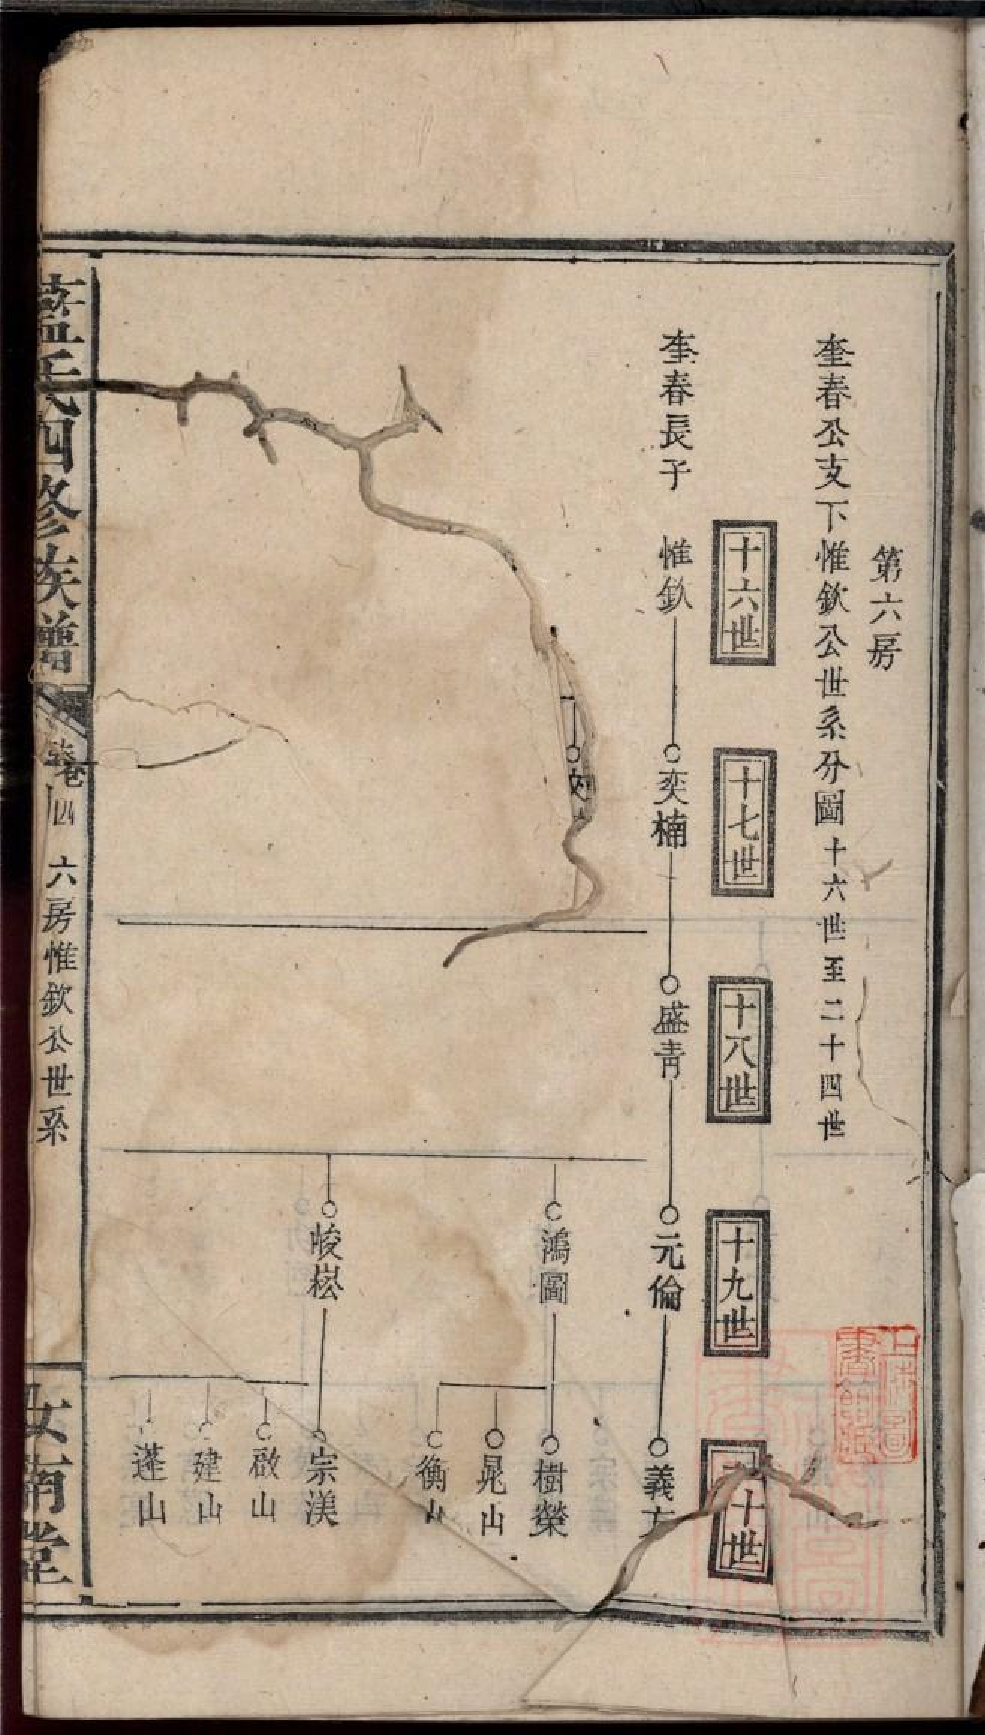 第六房
奎春公支下惟欽公世系分圖十六世至二十四世
十六世
十七世
十八世
十九世
二十世
奎春長子 惟欽
奕楠
盛青
元倫
義方
鴻圖
樹榮
晁山
衡山
峻崧
宗渼
啟山
建山
蓬山
藍氏四修族譜
卷四 六房惟欽公世系
汝南堂